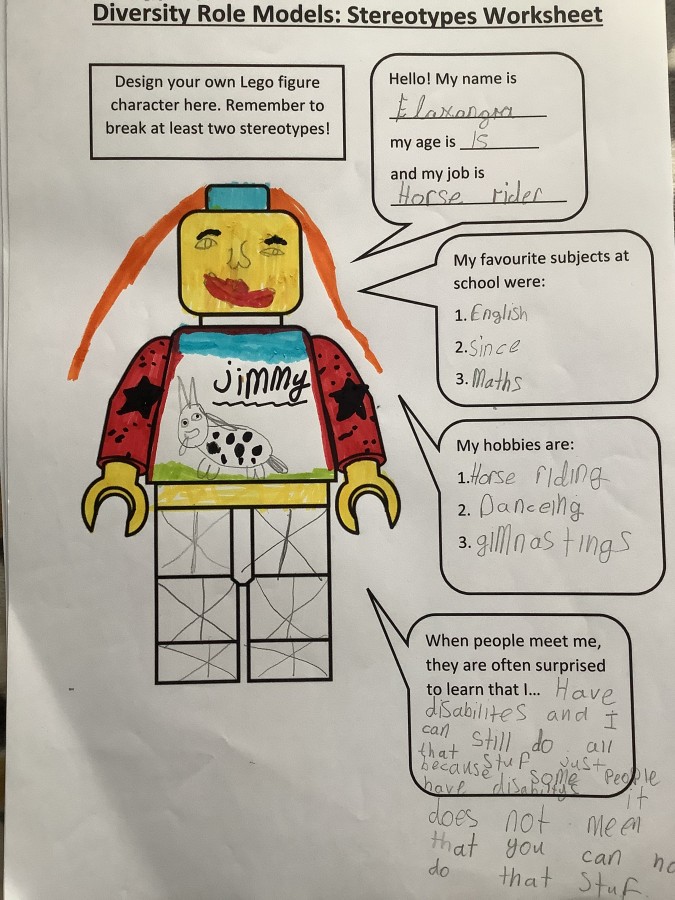 Diversity Role Models: Stereotypes Worksheet
Design your own Lego figure
character here. Remember to
break at least two stereotypes!
Hello! My name is
Elaxangra
my age is 15
and my job is
Horse rider
My favourite subjects at
school were:
1. English
2. Since
3. Maths
jiMMy
My hobbies are:
1. Horse riding
2. Danceing
3. gimnastings
When people meet me,
they are often surprised
to learn that I... Have
disabilites and I
can still do all
that stuf just
because some people
have disabiltys it
does not meen
that you can no
do that stuf.